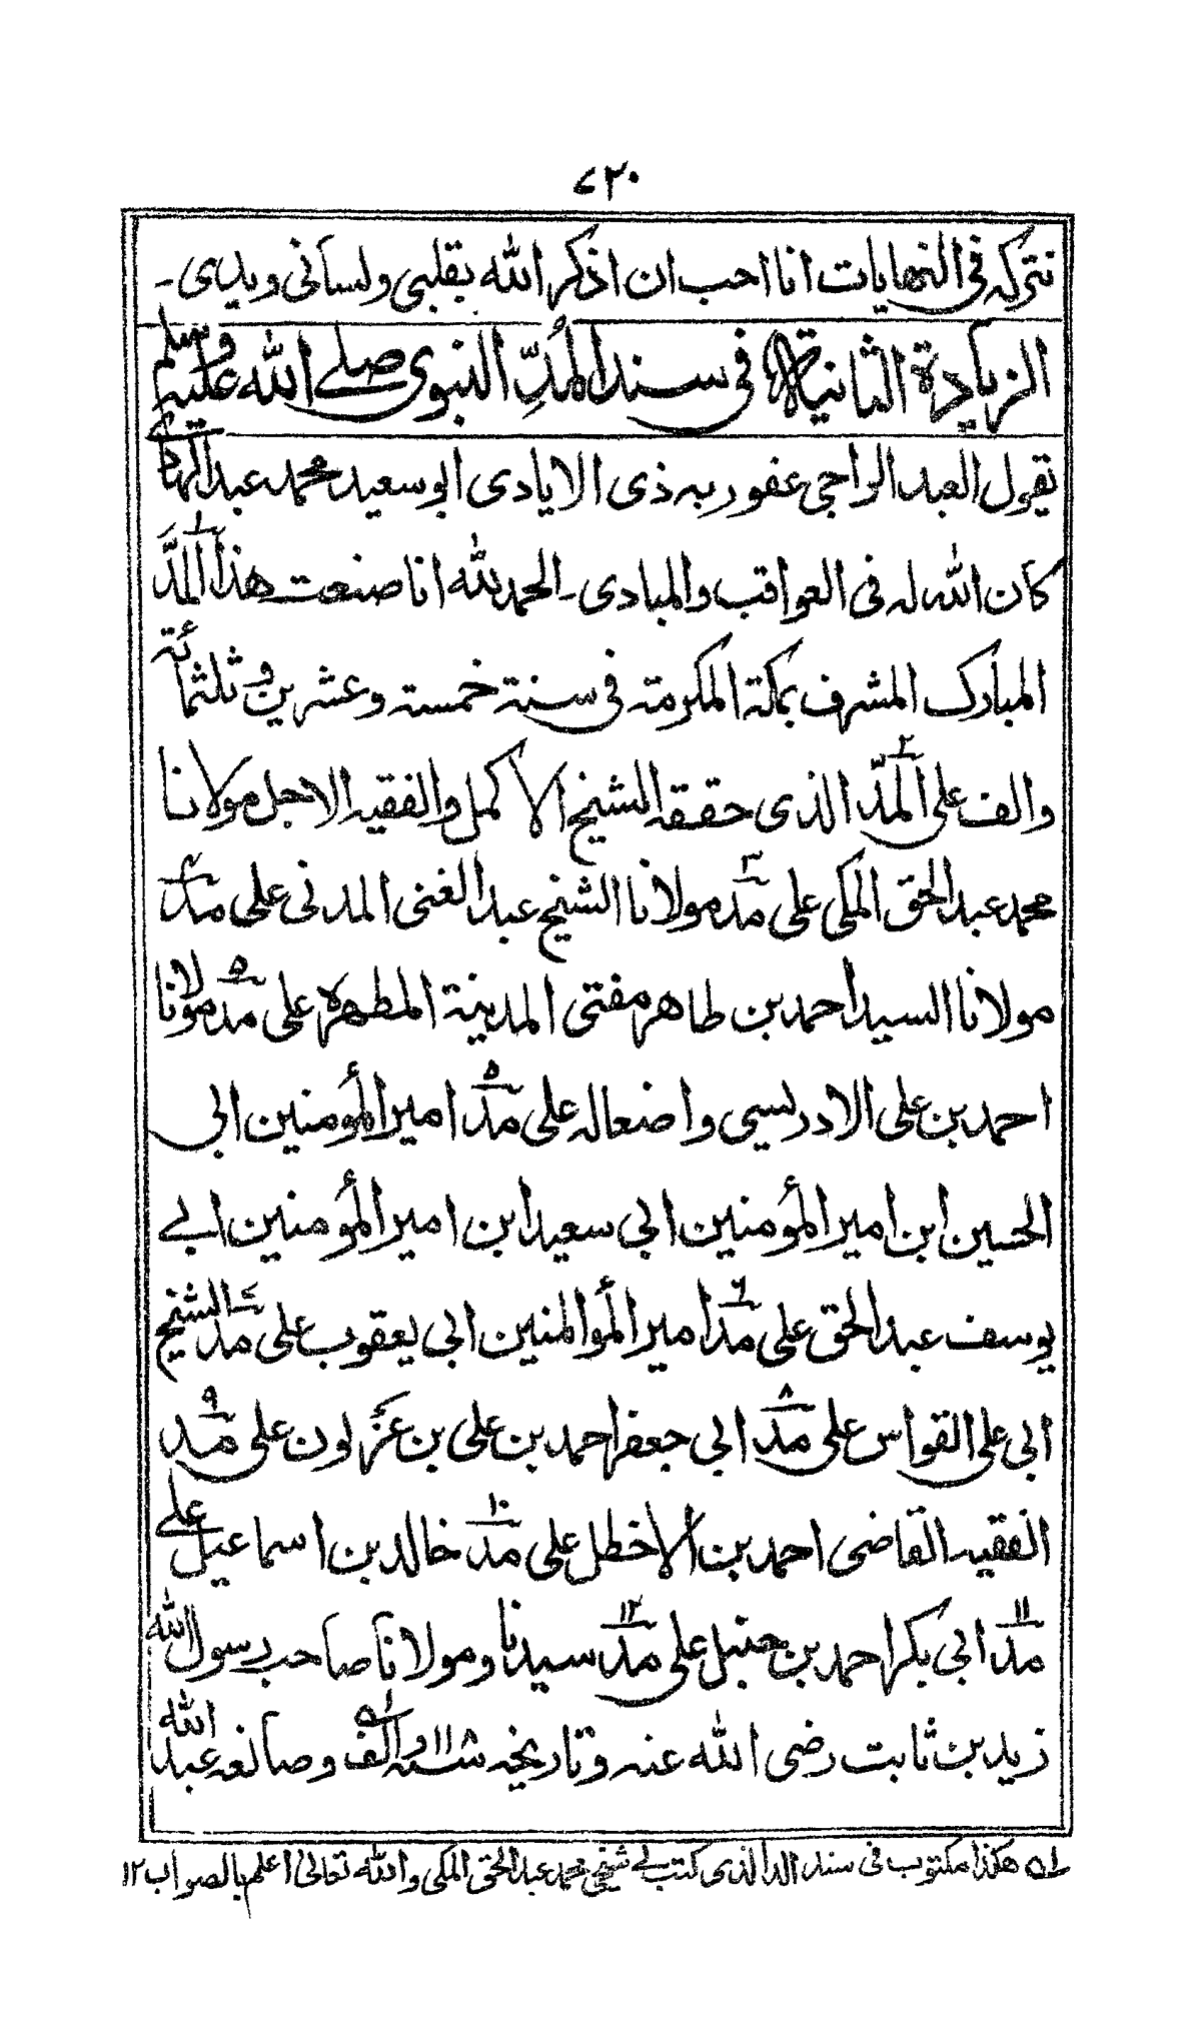 ٧٢٠
نتركه فى النهايات انا احب ان اذكر الله بقلبى ولسانى ويدى۔
الزيادة الثانية فى سند المُدِّ النبوى صلے الله عليه وسلم
يقول العبد الراجى عفو ربه ذى الايادى ابو سعيد محمد عبد الهادى
كان الله له فى العواقب والمبادى۔ الحمد لله انا صنعت هذا المدَّ ١
المبارك المشرف بمكة المكرمة فى سنة خمسة وعشرين وثلثمائة
والف على المدّ ٢ الذى حققه الشيخ الاكمل والفقيه الاجل مولانا
محمد عبد الحق المكى على مد ٣ مولانا الشيخ عبد الغنى المدنى على مد ٤
مولانا السيد احمد بن طاهر مفتى المدينة المطهرة على مد ٥ مولانا
احمد بن على الادريسى واضعاله على مد ٥ امير المؤمنين ابى
الحسين ابن امير المؤمنين ابى سعيد ابن امير المؤمنين ابے
يوسف عبد الحق على مد ٦ امير المؤالمنين ابى يعقوب على مد ٧ الشيخ
ابى على القواس على مد ٨ ابى جعفر احمد بن على بن عزلون على مد ٩
الفقيه القاضى احمد بن الاخطل على مد ١٠ خالد بن اسماعيل على
مد ١١ ابى بكر احمد بن حنبل على مد ١٢ سيدنا ومولانا صاحب رسول الله
زيد بن ثابت رضى الله عنه وتاريخه سنه ١١٨ والف وصانعه عبد الله
هكذا مكتوب فى سند المد الذى كتب لے شيخى محمد عبد الحق المكى والله تعالىٰ اعلم بالصواب ١٢